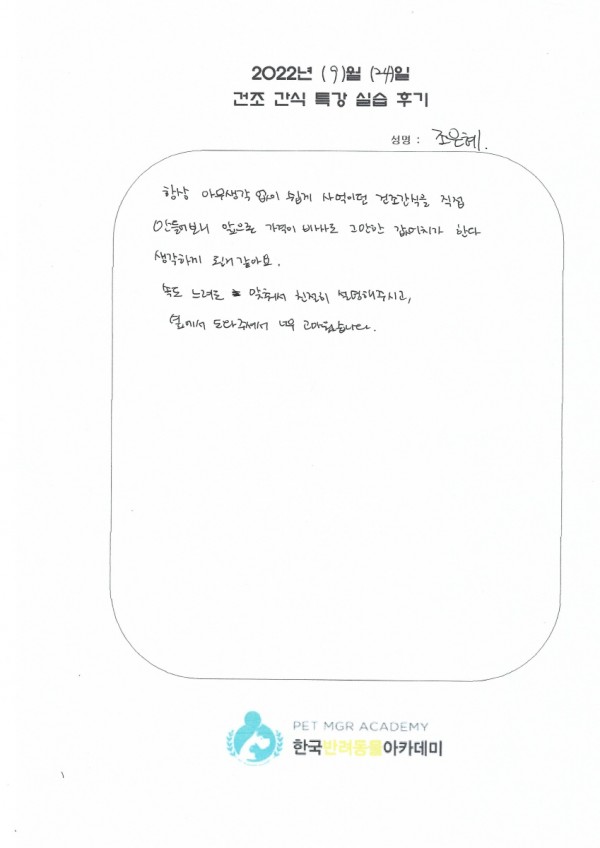 2022년 (9)월 (24)일
건조 간식 특강 실습 후기
성명 : 조은혜.
항상 아무생각 없이 쉽게 사먹이던 건조간식을 직접
만들어보니 앞으로 가격이 비싸도 그만한 값어치가 한다
생각하게 될거 같아요.
속도 느려도 맞춰서 친절히 설명해주시고,
옆에서 도와주셔서 너무 고마웠습니다.
PET MGR ACADEMY
한국반려동물아카데미